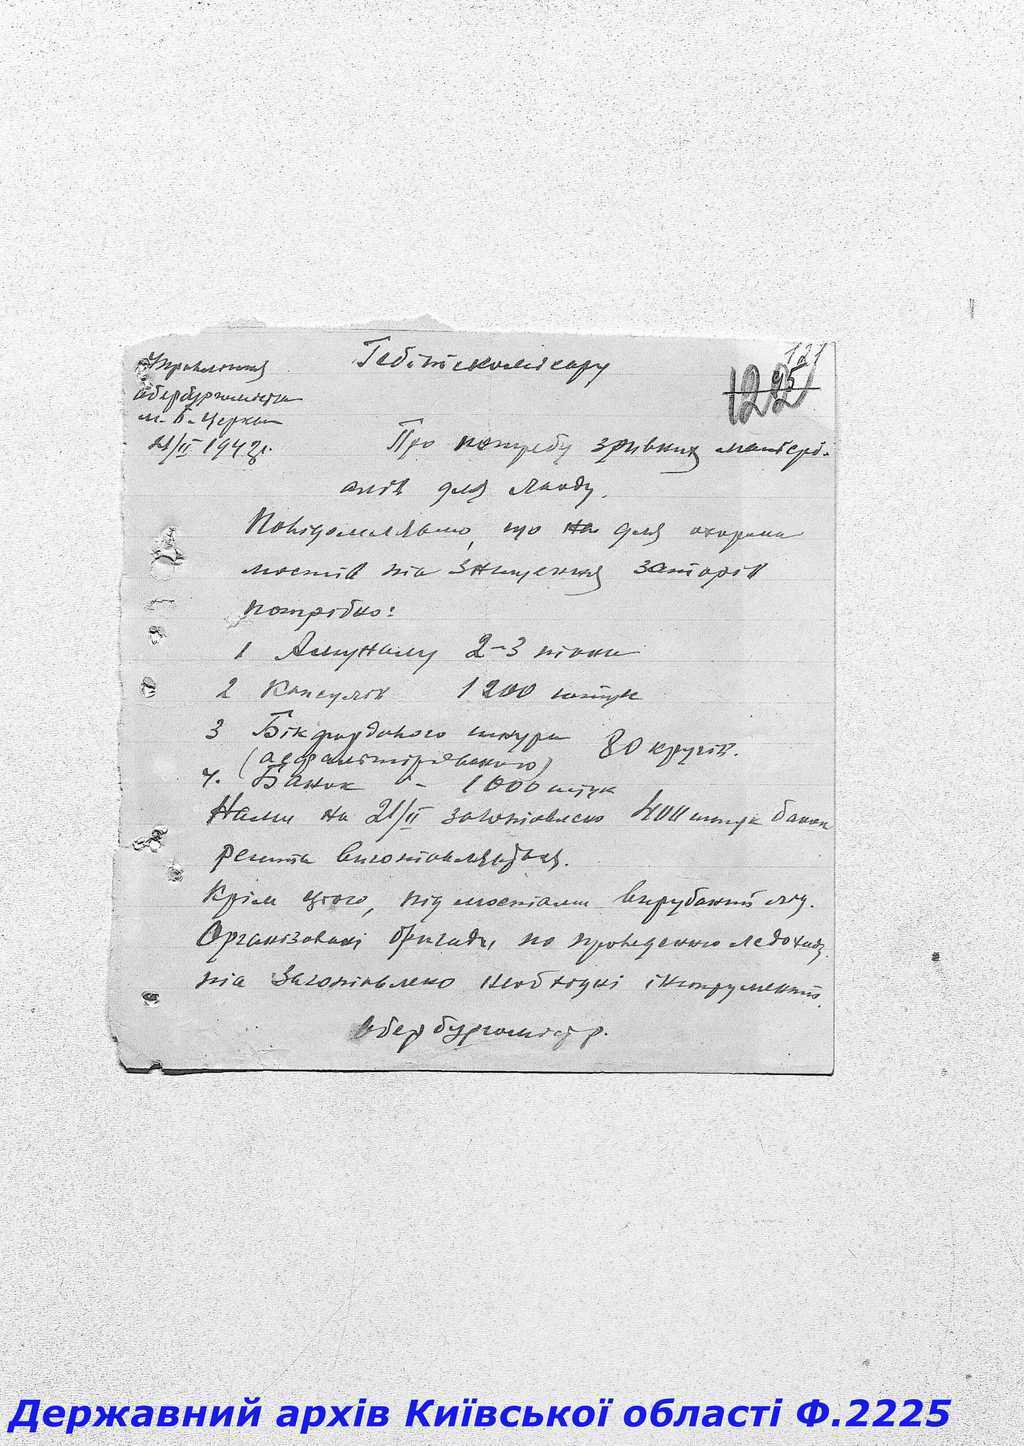 Управління
обербургомістра
м. Б-Церкви
21/II 1942р.
Гебітскомісару
121
95
122
Про потребу зривних матері-
алів для
Повідомляємо, що на для охорони
мостів та знищення заторів
потрібно:
1 Амуналу 2-3 тони
2 Капсулів 1200 штук
3 Бікфордового шнура 80 кругів.
(асфальтірованого)
4. Банок - 1000 штук
Нами на 21/II заготовлено 400 штук банок
решта виготовляється.
Крім цього, під мостами вирубаний лід.
Організовані бригади по проведенню ледоходу
та заготовлено необхідні інструменти.
Обербургомістр.
Державний архів Київської області Ф.2225